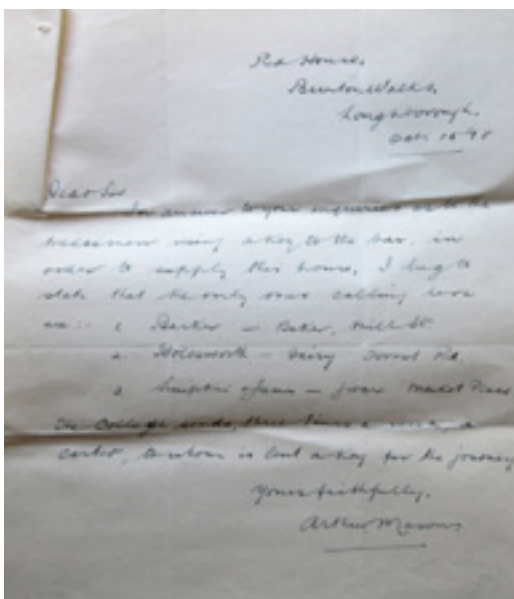 Red House,
Burton Walks,
Loughborough.
Dear Sir
In answer to your inquiries as to the
tradesmen now using a key to the bar, in
order to supply this house, I beg to
state that the only ones calling here
are:- 1 Barker — Baker, Mill St.
2 Holesworth — Dairy Forest Rd.
3 Simpkin & James — Grocer Market Place
The College sends, three times a week, a
carter, to whom is lent a key for the journey
Yours faithfully,
Arthur